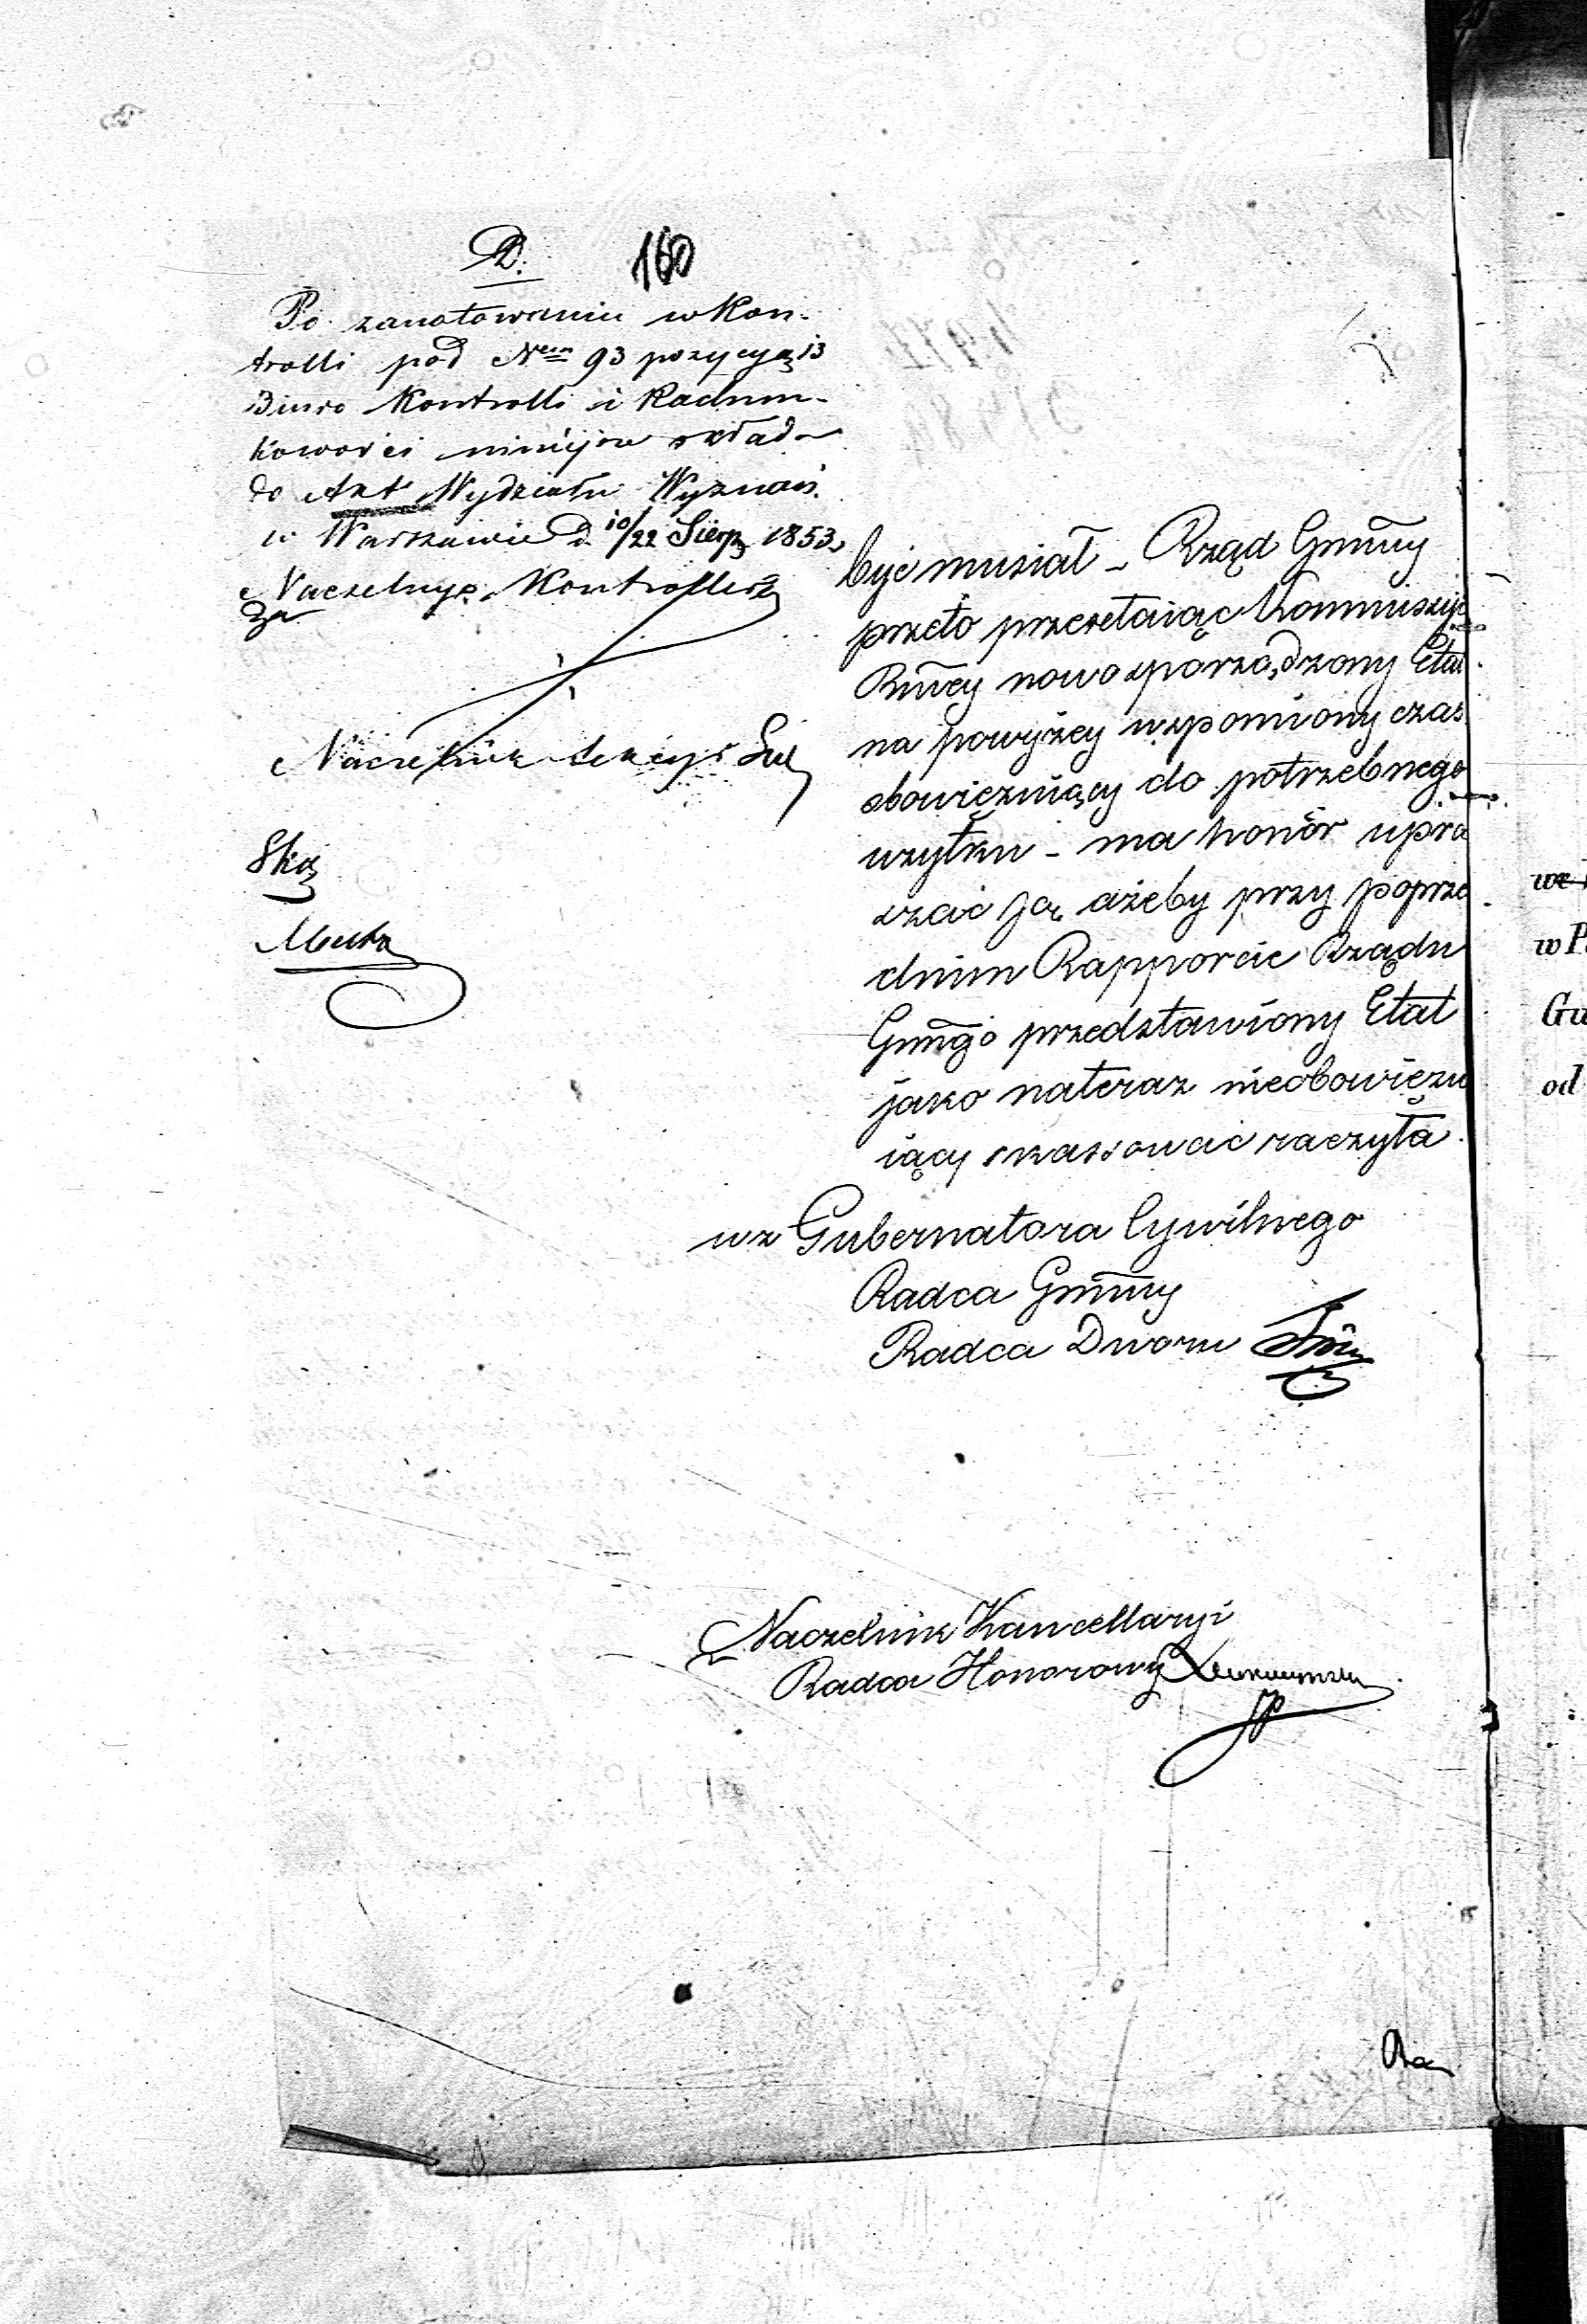 D. 160
Po zanotowaniu w Kon-
trolli pod Nem 93 pozycyą 13
Biuro Kontrolli i Rachun-
kowości niniejsze składa
do Akt Wydziału Wyznań.
w Warszawie d. 10/22 Sierp 1853
Naczelny Kontroller
Za
Naczelnik Sekcyi
być musiał – Rząd Gmlny
przeto przesełaiąc Kommissyi
Rwey nowo sporządzony Etat
na powyżey wspomniony czas
obowiezuiący do potrzebnego
użytku – ma honor upra
szać Ją, ażeby przy poprze
dnim Rapporcie Rządu
Gmlngo przedstawiony Etat
jako nateraz nieobowięzu
iący skassować raczyła.
wz Gubernatora Cywilnego
Radca Gmlny
Radca Dworu
Naczelnik Kancellaryi
Radca Honorowy
Ra
w P
Gu
od